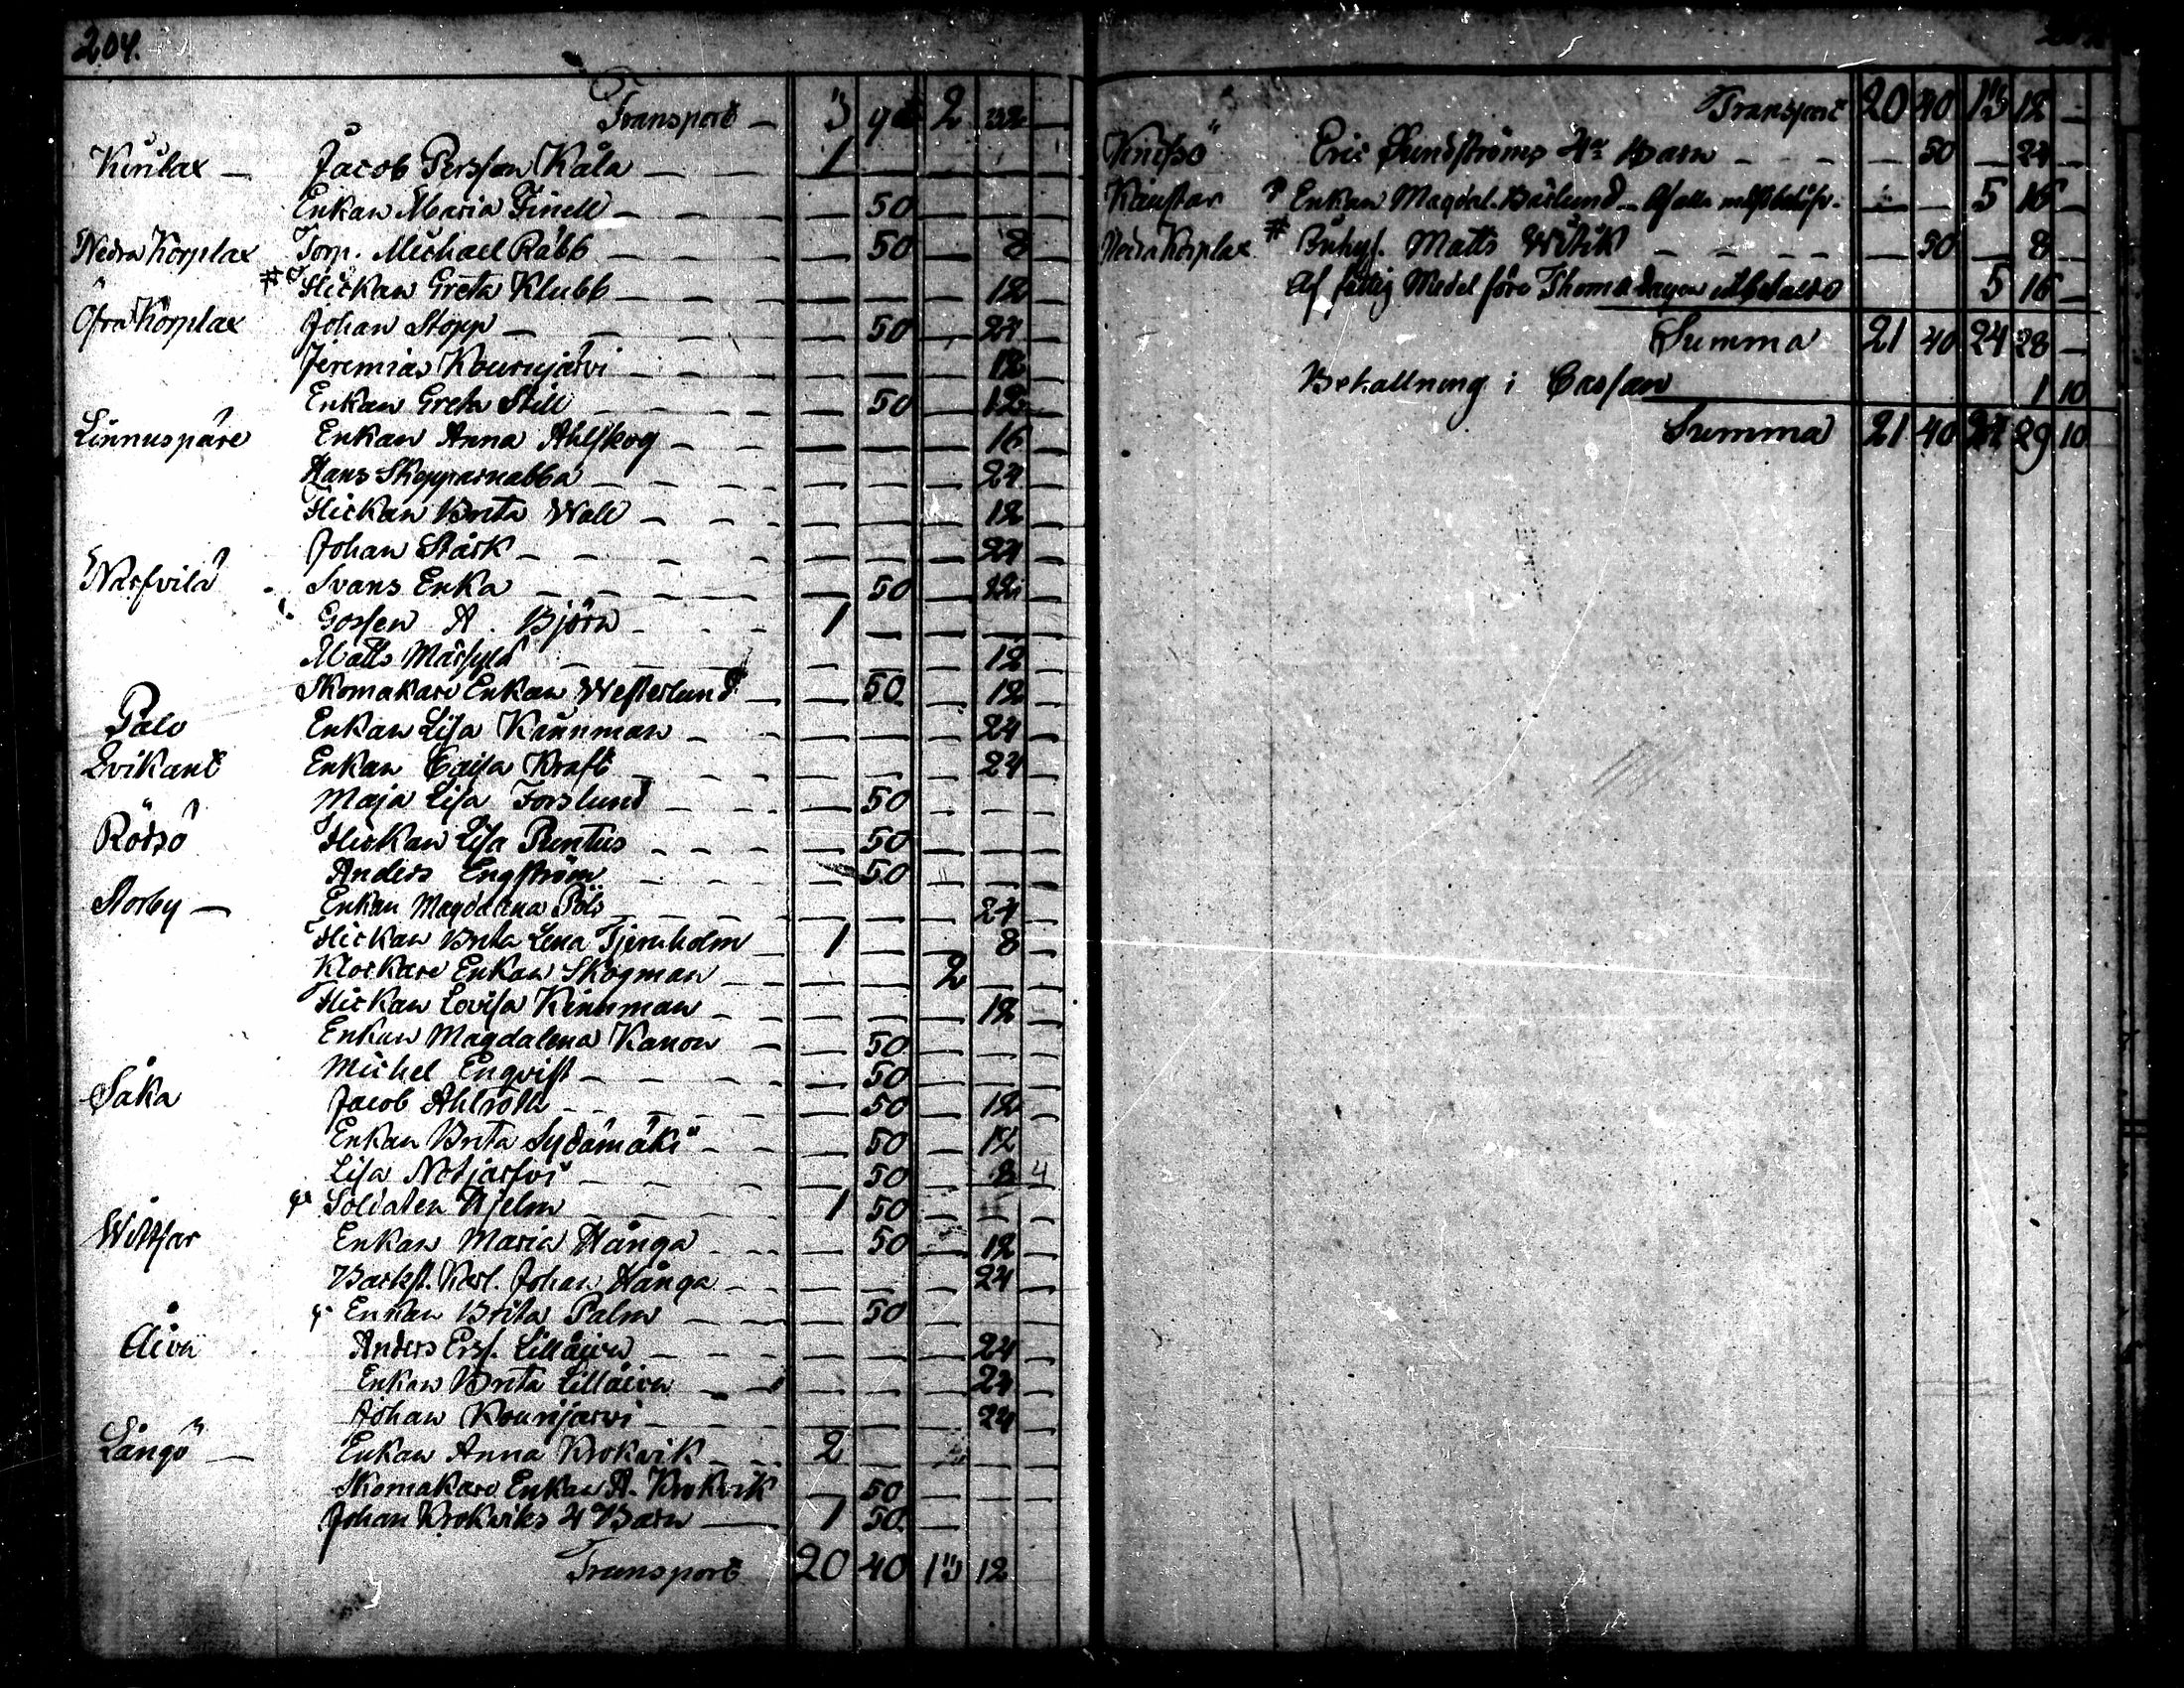 204.
Transport — 3 90 2 32 —
Kirilax — Jacob Persson Kåla — 1 — — — —
Enkan Maria Finell — — 50 — — —
Nedra Korplax Torp. Michael Rabb — — 50 — 8 —
# Flickan Greta Klubb — — — — 12 —
Öfra Korplax Johan Stopp — — 50 — 24 —
Jeremias Kourujärvi — — — — 12 —
Enkan Greta Still — — 50 — 12 —
Linnuspäre Enkan Anna Ahlskog — — — — 16 —
Hans Skepparnabba — — — — 24 —
Flickan Brita Wall — — — — 12 —
Johan Stark — — — — 24 —
Narfvilä Svans Enka — — 50 — 12 —
Gossen A. Björn — 1 — — — —
Matts Märsylä — — — — 12 —
Skomakare Enkan Westerlund — — 50 — 12 —
Palo Enkan Lisa Kinnman — — — — 24 —
Qvikant Enkan Caisa Kraft — — — — 24 —
Maja Lisa Forslund — — 50 — — —
Rödsö Flickan Lisa Puntus — — 50 — — —
Anders Engström — — 50 — — —
Storby — Enkan Magdalena Pöls — — — — 24 —
Flickan Brita Lena Tjernholm — 1 — — 8 —
Klockare Enkan Skogman — — — 2 — —
Flickan Lovisa Kinnman — — — — 12 —
Enkan Magdalena Kanon — — 50 — — —
Michel Enqvist — — 50 — — —
Såka Jacob Ahlroth — — 50 — 12 —
Enkan Brita Sydämäki — — 50 — 12 —
Lisa Notjärfvi — — 50 — 8 4
Soldaten Hjelm — 1 50 — — —
Wittsar Enkan Maria Hånga — — 50 — 12 —
Backst. Karl. Johan Hånga — — — — 24 —
Enkan Brita Palm — — 50 — — —
Åivu Anders Ersf. Lillåivu — — — — 24 —
Enkan Brita Lillåivu — — — — 24 —
Johan Kourijärvi — — — — 24 —
Långö — Enkan Anna Krokvik — 2 — — —
Skomakare Enkan A. Krokvik — 50 — — —
Johan Krokviks 4 Barn — 1 50 —
Transport 20 40 13 12
Transport 20 40 13 12 —
Knifsö Eric Sundströms Barn — — 50 — 24 —
Kaustar Enkan Magdal. Barlund — — 5 16 —
Nedra Korplax # Inhys. Matts Witik — — 50 — 8 —
Af fattig Medel före Thomædagen utbetalts 5 16 —
Summa 21 40 24 28 —
Behallning i Cassan 1 10
Summa 21 40 24 29 10